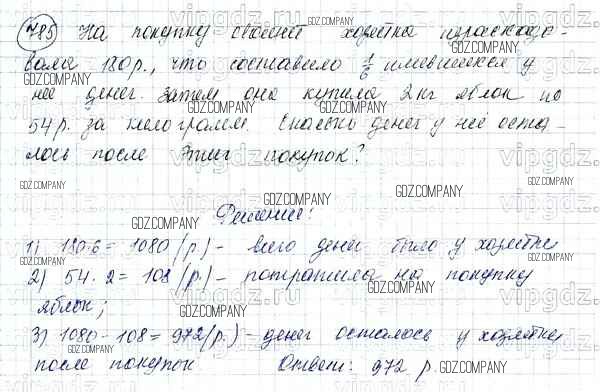 785 На покупку овощей хозяйка израсходо-
вала 180 р., что составило 1/6 имевшихся у
неё денег. Затем она купила 2 кг яблок по
54 р. за килограмм. Сколько денег у неё оста-
лось после этих покупок?
Решение:
1) 180·6 = 1080 (р.) - всего денег было у хозяйки
2) 54·2 = 108 (р.) - потратила на покупку
яблок;
3) 1080 - 108 = 972 (р.) - денег осталось у хозяйки
после покупок Ответ: 972 р.
GDZ.COMPANY
vipgdz.ru